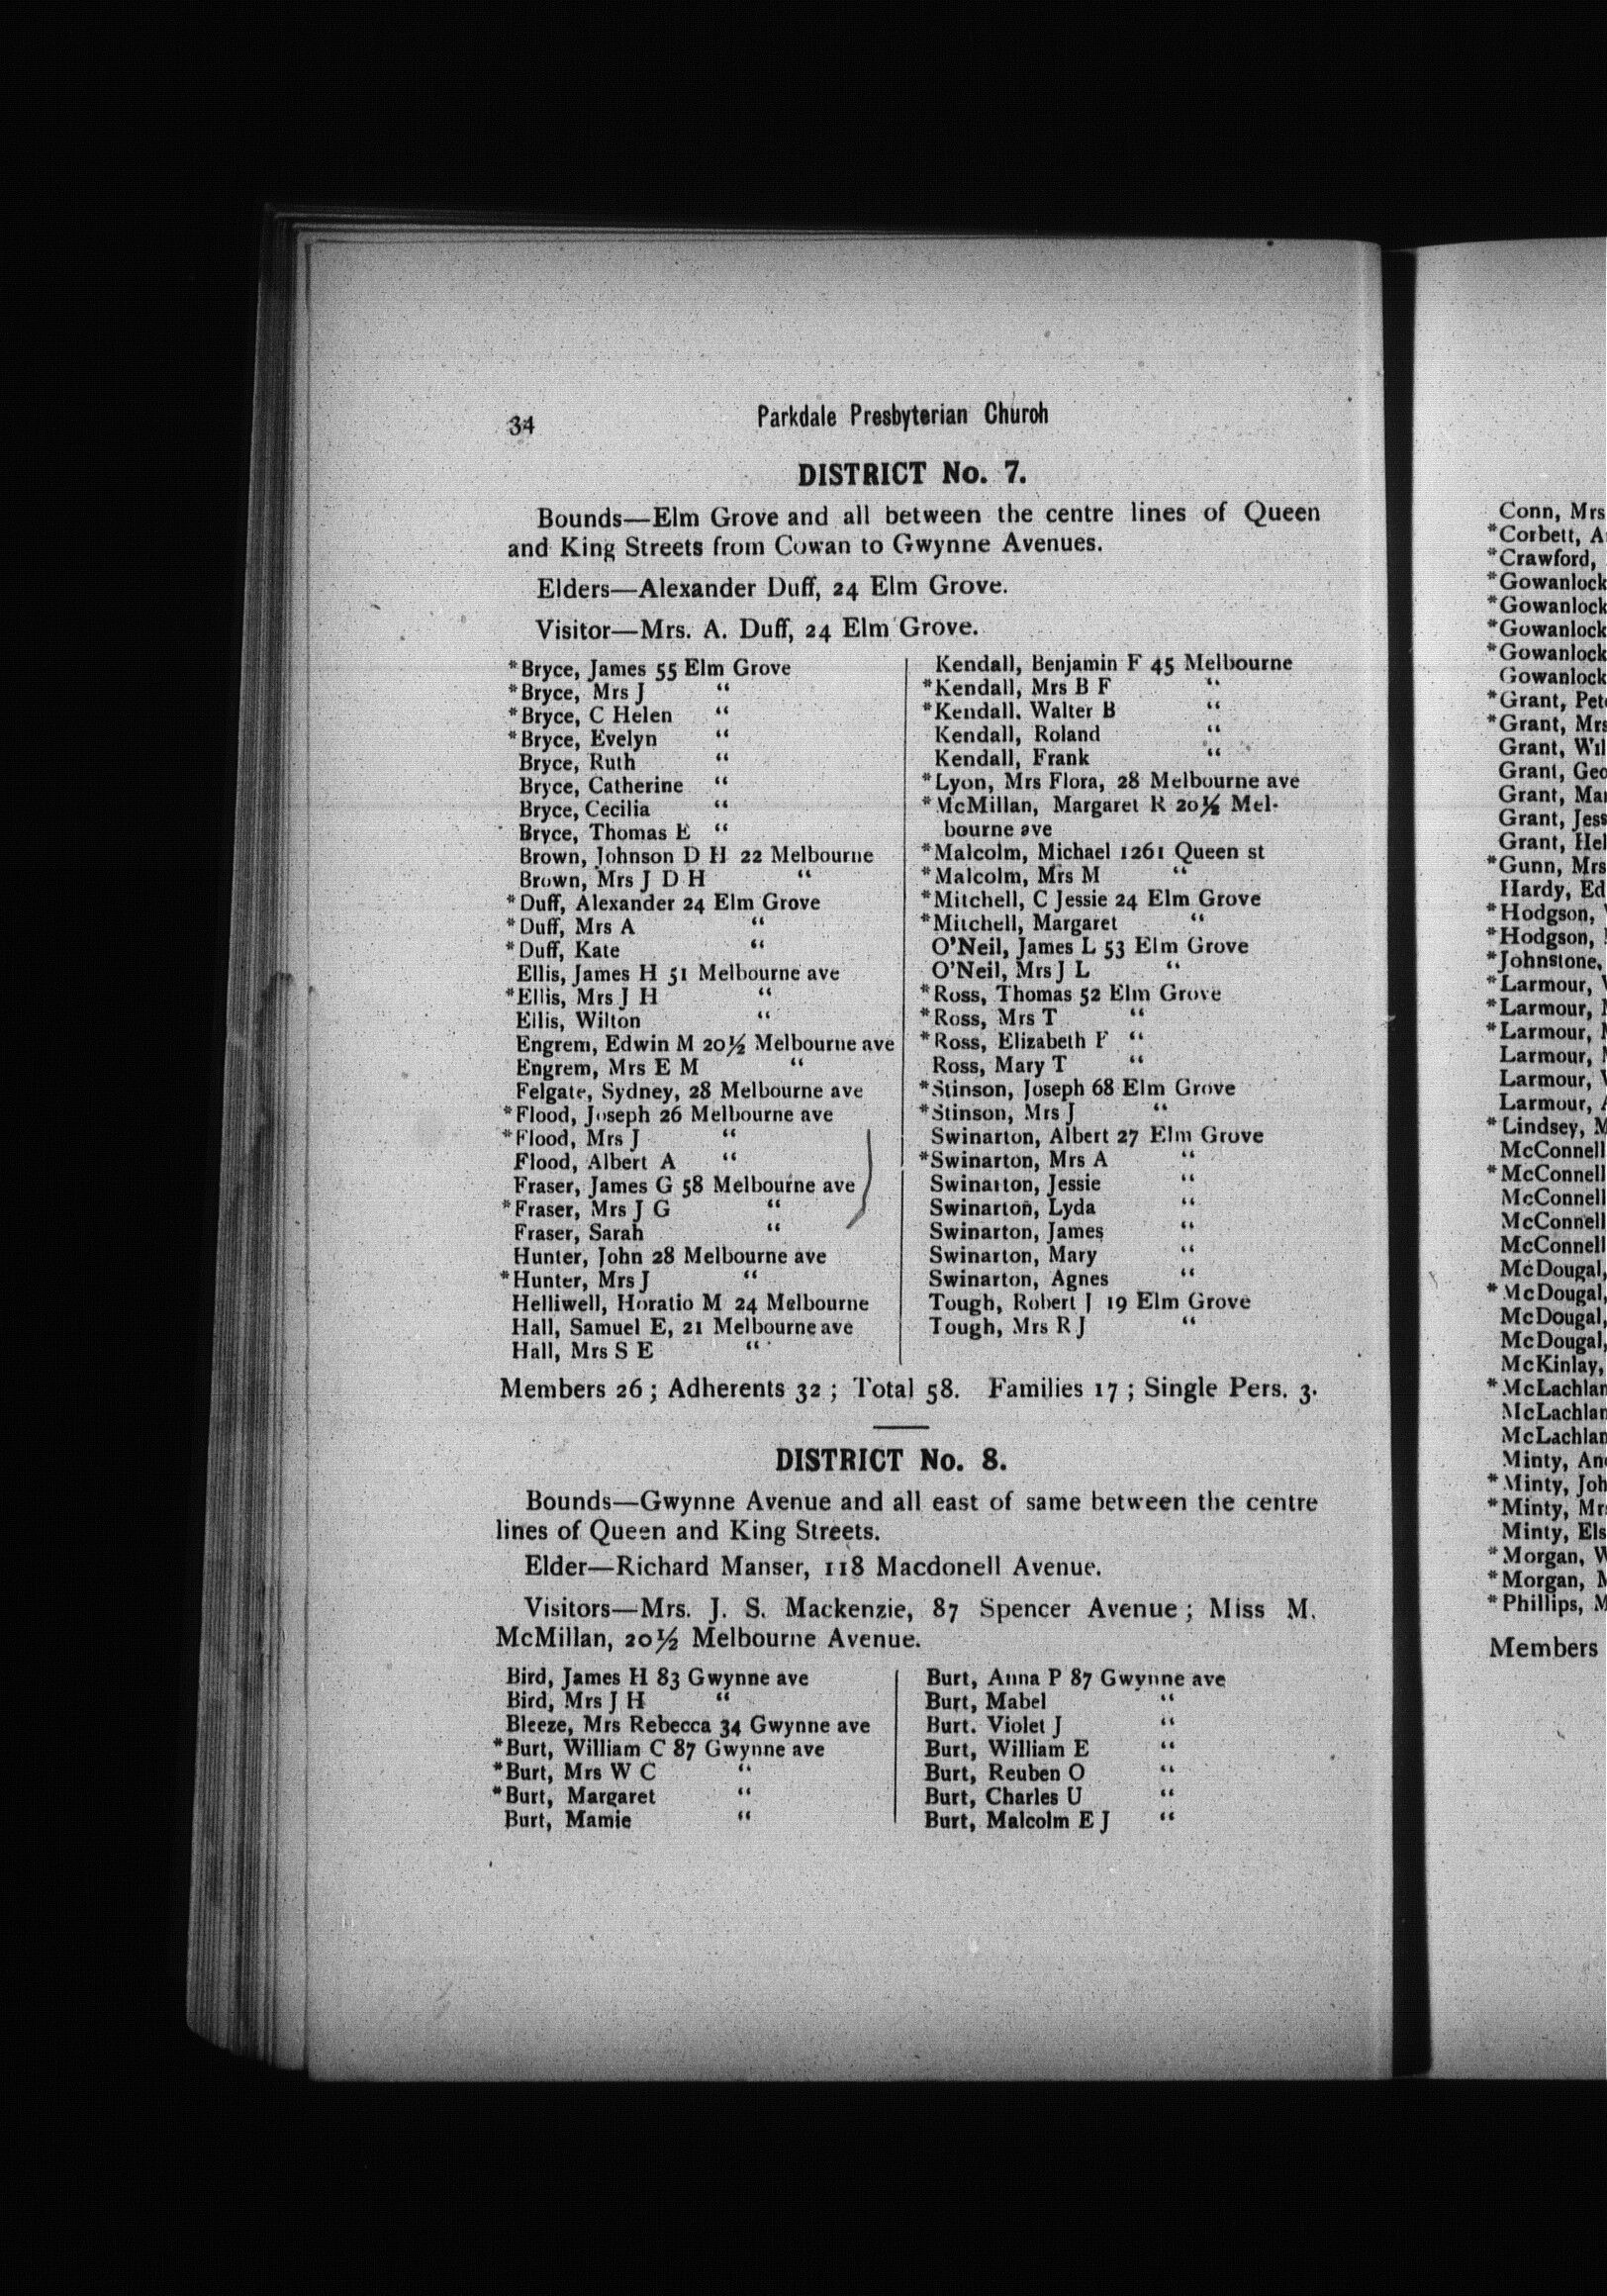 34
Parkdale Presbyterian Church
DISTRICT No. 7.
Bounds—Elm Grove and all between the centre lines of Queen
and King Streets from Cowan to Gwynne Avenues.
Elders—Alexander Duff, 24 Elm Grove.
Visitor—Mrs. A. Duff, 24 Elm Grove.
*Bryce, James 55 Elm Grove
*Bryce, Mrs J “
*Bryce, C Helen “
*Bryce, Evelyn “
Bryce, Ruth “
Bryce, Catherine “
Bryce, Cecilia “
Bryce, Thomas E “
Brown, Johnson D H 22 Melbourne
Brown, Mrs J D H “
*Duff, Alexander 24 Elm Grove
*Duff, Mrs A “
*Duff, Kate “
Ellis, James H 51 Melbourne ave
*Ellis, Mrs J H “
Ellis, Wilton “
Engrem, Edwin M 20½ Melbourne ave
Engrem, Mrs E M “
Felgate, Sydney, 28 Melbourne ave
*Flood, Joseph 26 Melbourne ave
*Flood, Mrs J “
Flood, Albert A “
Fraser, James G 58 Melbourne ave
*Fraser, Mrs J G “
Fraser, Sarah “
Hunter, John 28 Melbourne ave
*Hunter, Mrs J “
Helliwell, Horatio M 24 Melbourne
Hall, Samuel E, 21 Melbourne ave
Hall, Mrs S E “
Kendall, Benjamin F 45 Melbourne
*Kendall, Mrs B F “
*Kendall. Walter B “
Kendall, Roland “
Kendall, Frank “
*Lyon, Mrs Flora, 28 Melbourne ave
*McMillan, Margaret R 20½ Mel-
bourne ave
*Malcolm, Michael 1261 Queen st
*Malcolm, Mrs M “
*Mitchell, C Jessie 24 Elm Grove
*Mitchell, Margaret “
O'Neil, James L 53 Elm Grove
O'Neil, Mrs J L “
*Ross, Thomas 52 Elm Grove
*Ross, Mrs T “
*Ross, Elizabeth F “
Ross, Mary T “
*Stinson, Joseph 68 Elm Grove
*Stinson, Mrs J “
Swinarton, Albert 27 Elm Grove
*Swinarton, Mrs A “
Swinarton, Jessie “
Swinarton, Lyda “
Swinarton, James “
Swinarton, Mary “
Swinarton, Agnes “
Tough, Robert J 19 Elm Grove
Tough, Mrs R J “
Members 26 ; Adherents 32 ; Total 58. Families 17 ; Single Pers. 3.
DISTRICT No. 8.
Bounds—Gwynne Avenue and all east of same between the centre
lines of Queen and King Streets.
Elder—Richard Manser, 118 Macdonell Avenue.
Visitors—Mrs. J. S. Mackenzie, 87 Spencer Avenue ; Miss M.
McMillan, 20½ Melbourne Avenue.
Bird, James H 83 Gwynne ave
Bird, Mrs J H “
Bleeze, Mrs Rebecca 34 Gwynne ave
*Burt, William C 87 Gwynne ave
*Burt, Mrs W C “
*Burt, Margaret “
Burt, Mamie “
Burt, Anna P 87 Gwynne ave
Burt, Mabel “
Burt. Violet J “
Burt, William E “
Burt, Reuben O “
Burt, Charles U “
Burt, Malcolm E J “
Conn, Mrs
*Corbett,
*Crawford,
*Gowanlock
*Gowanlock
*Gowanlock
*Gowanlock
Gowanlock
*Grant,
*Grant, Mrs
Grant,
Grant,
Grant,
Grant,
Grant,
*Gunn, Mrs
Hardy,
*Hodgson,
*Hodgson,
*Johnstone,
*Larmour,
*Larmour,
*Larmour,
Larmour,
Larmour,
Larmour,
*Lindsey,
McConnell
*McConnell
McConnell
McConnell
McConnell
McDougal,
*McDougal,
McDougal,
McDougal,
McKinlay,
*McLachlan
McLachlan
McLachlan
Minty,
*Minty,
*Minty,
Minty,
*Morgan,
*Morgan,
*Phillips,
Members